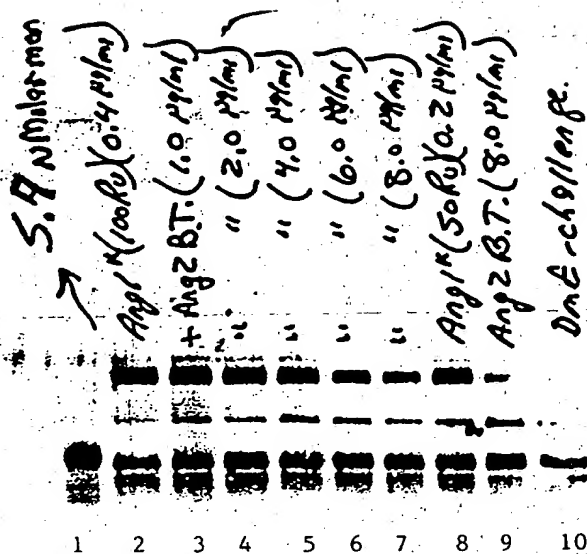 5.9 nMilar mon
Ang1* (100RU)(0.4 µg/ml)
+ Ang2 B.T. (1.0 µg/ml)
" " (2.0 µg/ml)
" " (4.0 µg/ml)
" " (6.0 µg/ml)
" " (8.0 µg/ml)
Ang1* (50RU)(0.2 µg/ml)
Ang2 B.T. (8.0 µg/ml)
DmE-challenge.
1 2 3 4 5 6 7 8 9 10